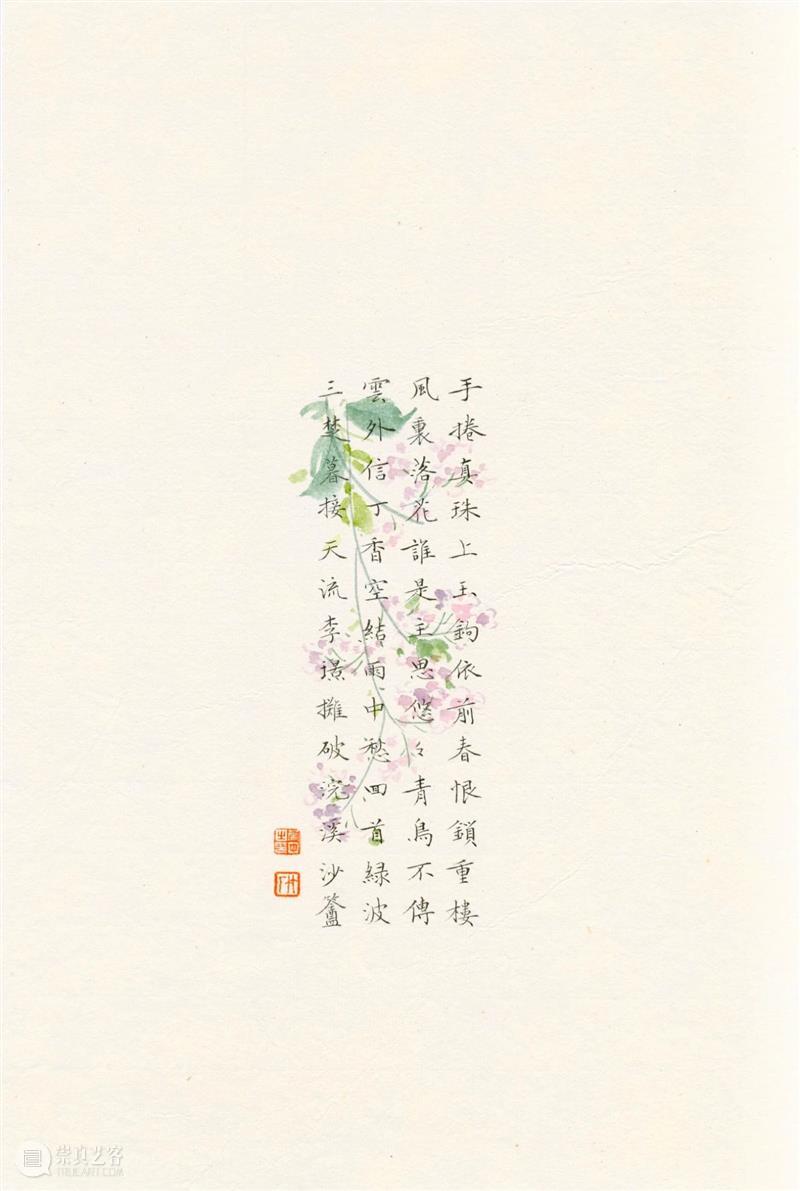 手捲真珠上玉鉤依前春恨鎖重樓
風裏落花誰是主思悠々青鳥不傳
雲外信丁香空結雨中愁回首緑波
三楚暮接天流李璟攤破浣溪沙
崇真艺客
TRUEART.COM